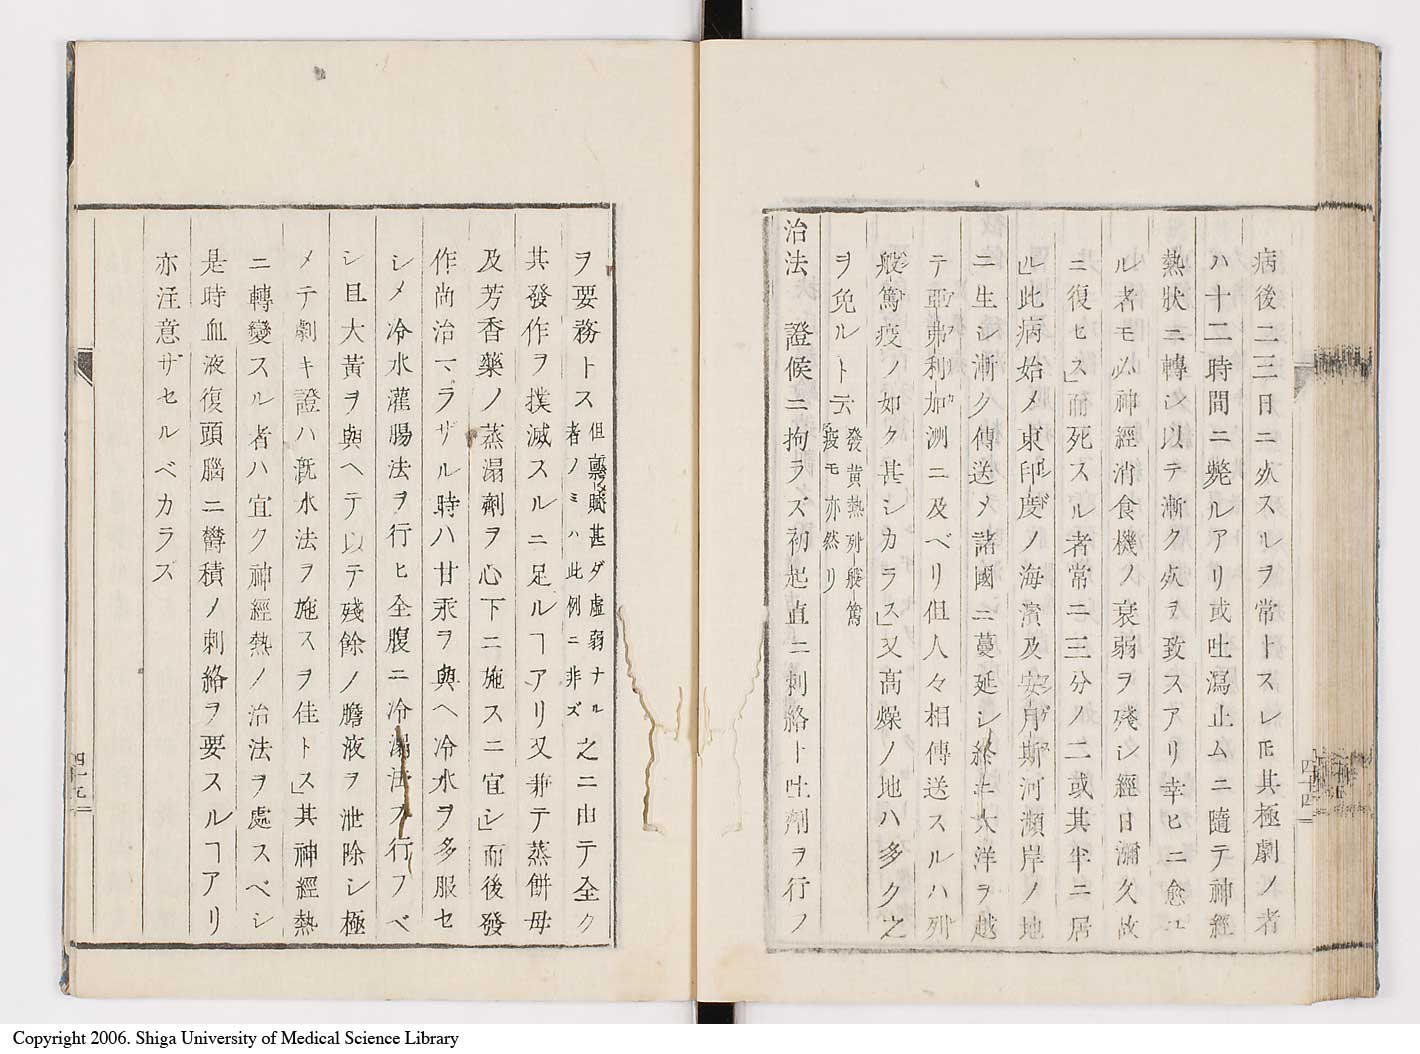 病後二三日ニ㱸スルヲ常トスレ𪜈其極劇ノ者
ハ十二時間ニ斃ルアリ或吐瀉止ムニ隨テ神經
熱狀ニ轉シ以テ漸ク㱸ヲ致スアリ幸ヒニ愈ユ
ル者モ必神經消食機ノ衰弱ヲ殘シ經日瀰久故
ニ復セス」而死スル者常ニ三分ノ二或其半ニ居
ル」此病始メ東印度ノ海濱及安月斯河瀬岸ノ地
ニ生シ漸ク傳送メ諸國ニ蔓延シ終ニ大洋ヲ越
テ亞弗利加洲ニ及ベリ但人々相傳送スルハ列
般篤疫ノ如ク甚シカラス」又高燥ノ地ハ多ク之
ヲ免ルト云 發黃熱列般篤
疫モ亦然リ
治法 證候ニ拘ラズ初起直ニ刺絡ト吐劑ヲ行ノ
ヲ要務トス 但稟賦甚ダ虛弱ナル
者ノミハ此例ニ非ズ 之ニ由テ全ク
其發作ヲ撲滅スルニ足ルヿアリ又兼テ蒸餅母
及芳香藥ノ蒸溻劑ヲ心下ニ施スニ宜シ」而後發
作尚治マラザル時ハ甘汞ヲ與ヘ冷水ヲ多服セ
シメ冷水灌腸法ヲ行ヒ全腹ニ冷溻法ヲ行フベ
シ且大黃ヲ與ヘテ以テ殘餘ノ膽液ヲ泄除シ極
メテ劇キ證ハ漑水法ヲ施スヲ佳トス」其神經熱
ニ轉變スル者ハ宜ク神經熱ノ治法ヲ處スベシ
是時血液復頭腦ニ欝積ノ刺絡ヲ要スルヿアリ
亦注意ザセルベカラズ
四十四
四十五
Copyright 2006. Shiga University of Medical Science Library